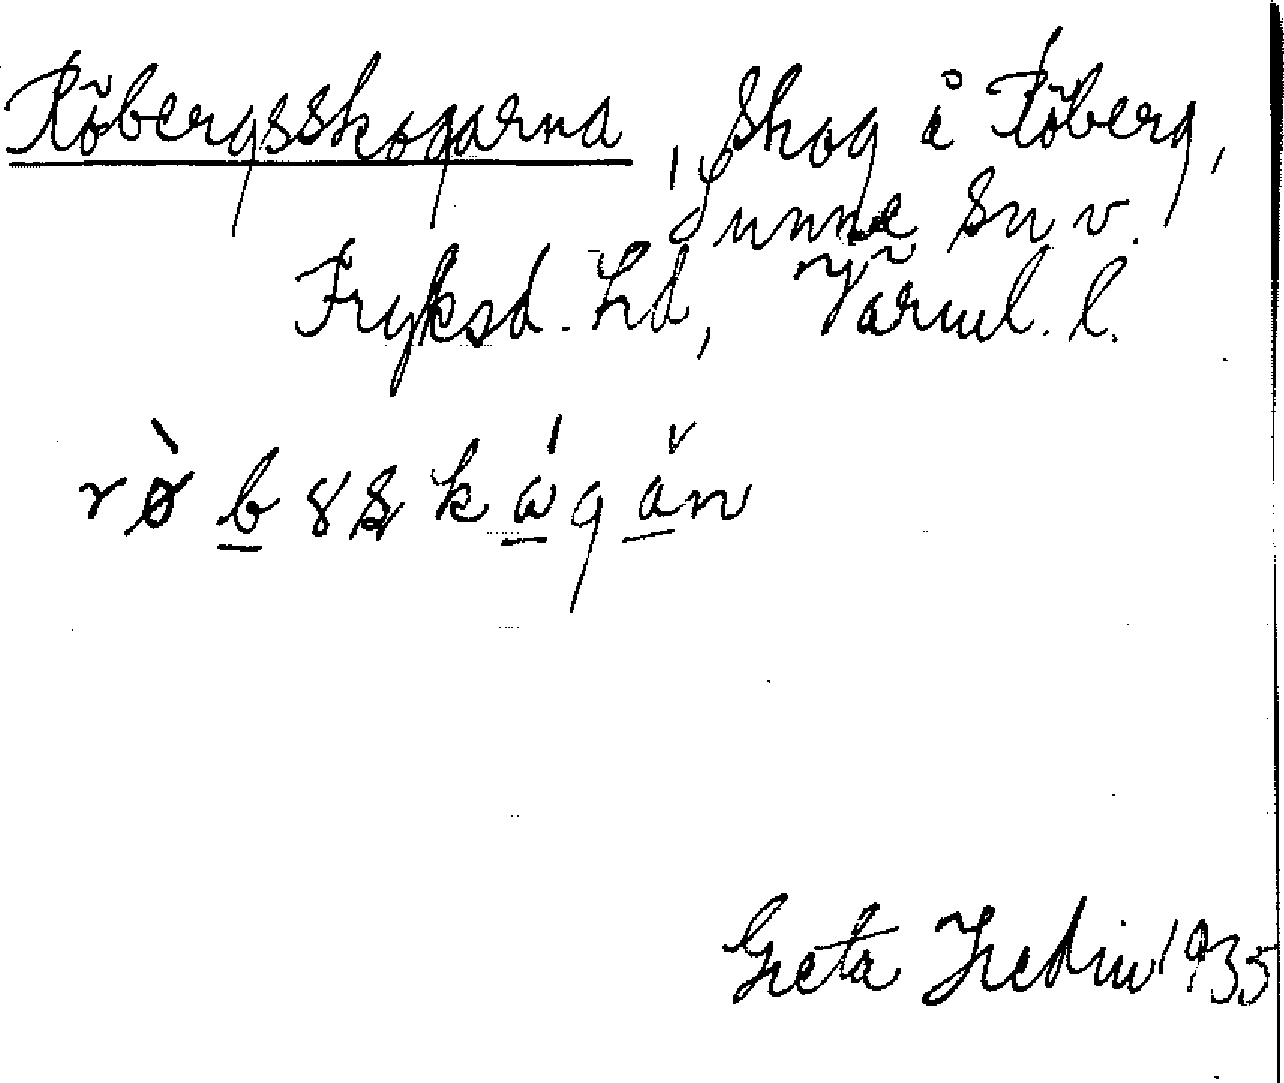 Röbergsskogarna, Skog å Röberg,
Sunne Sn v.
Fryksd. Hd, Värml. l.
rø̀ b s s k á g ǎ n
Greta Hedin 1935